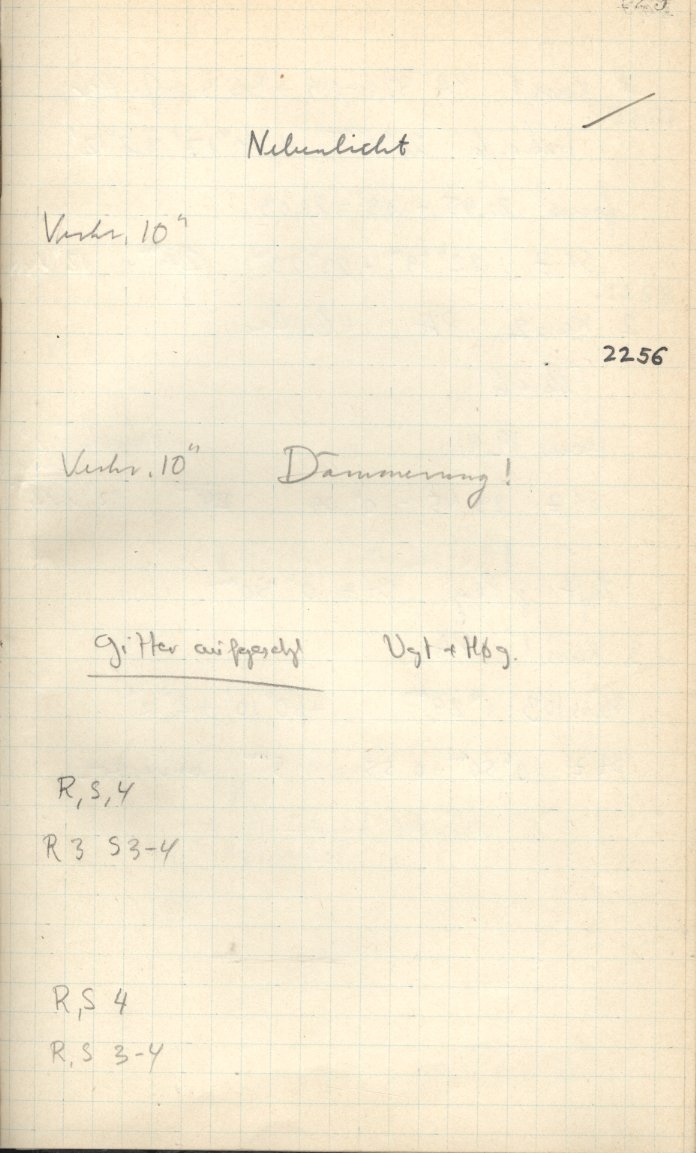 Nebenlicht
Verkr. 10"
2256
Verkr. 10" Dämmerung!
Gitter aufgesetzt Vgt + Høg.
R, S, 4
R 3 S 3-4
R, S 4
R, S 3-4